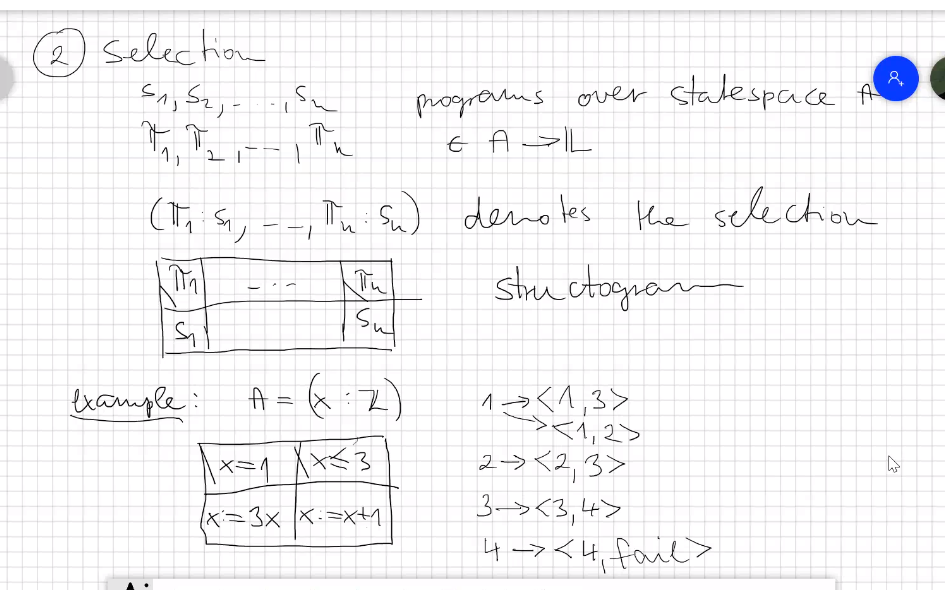 ② Selection
S1, S2, ..., Sn programs over statespace A
π1, π2, ..., πn ∈ A → 𝕃
(π1 : S1, ..., πn : Sn) denotes the selection
π1 ... πn structogram
S1 Sn
example: A = (x : ℤ) 1 → <1,3>
→ <1,2>
x=1 x≤3 2 → <2,3>
x:=3x x:=x+1 3 → <3,4>
4 → <4,fail>